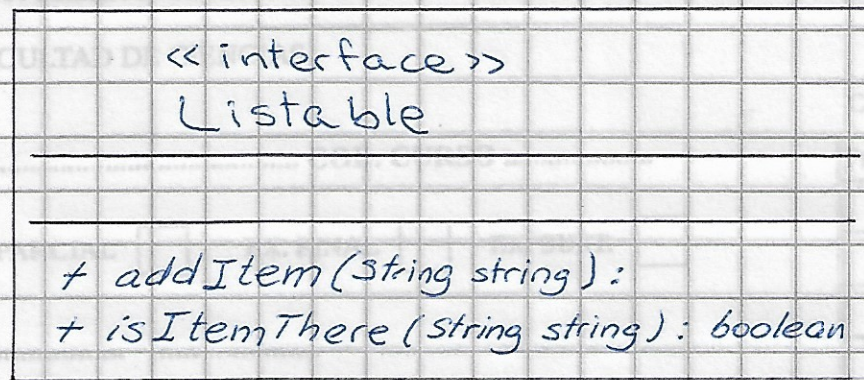 << interface >>
Listable
+ addItem(String string):
+ isItemThere(String string): boolean